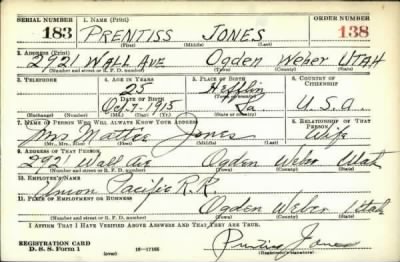 SERIAL NUMBER 1. NAME (Print) ORDER NUMBER
183 PRENTISS JONES 138
(First) (Middle) (Last)
2. ADDRESS (Print)
2921 WALL AVE Ogden Weber UTAH
(Number and street or R. F. D. number) (Town) (County) (State)
3. TELEPHONE 4. AGE IN YEARS 5. PLACE OF BIRTH 6. COUNTRY OF CITIZENSHIP
25 Heflin
DATE OF BIRTH (Town or county)
Oct 7 1915 La U.S.A.
(Exchange) (Number) (Mo.) (Day) (Yr.) (State or country)
7. NAME OF PERSON WHO WILL ALWAYS KNOW YOUR ADDRESS 8. RELATIONSHIP OF THAT PERSON
Mrs Mattie Jones Wife
(Mr., Mrs., Miss) (First) (Middle) (Last)
9. ADDRESS OF THAT PERSON
2921 Wall Ave Ogden Weber Utah
(Number and street or R. F. D. number) (Town) (County) (State)
10. EMPLOYER'S NAME
Union Pacific R.R.
11. PLACE OF EMPLOYMENT OR BUSINESS
Ogden Weber Utah
(Number and street or R. F. D. number) (Town) (County) (State)
I AFFIRM THAT I HAVE VERIFIED ABOVE ANSWERS AND THAT THEY ARE TRUE.
REGISTRATION CARD
D. S. S. Form 1 (over) 16-17105 Prentiss Jones
(Registrant's signature)